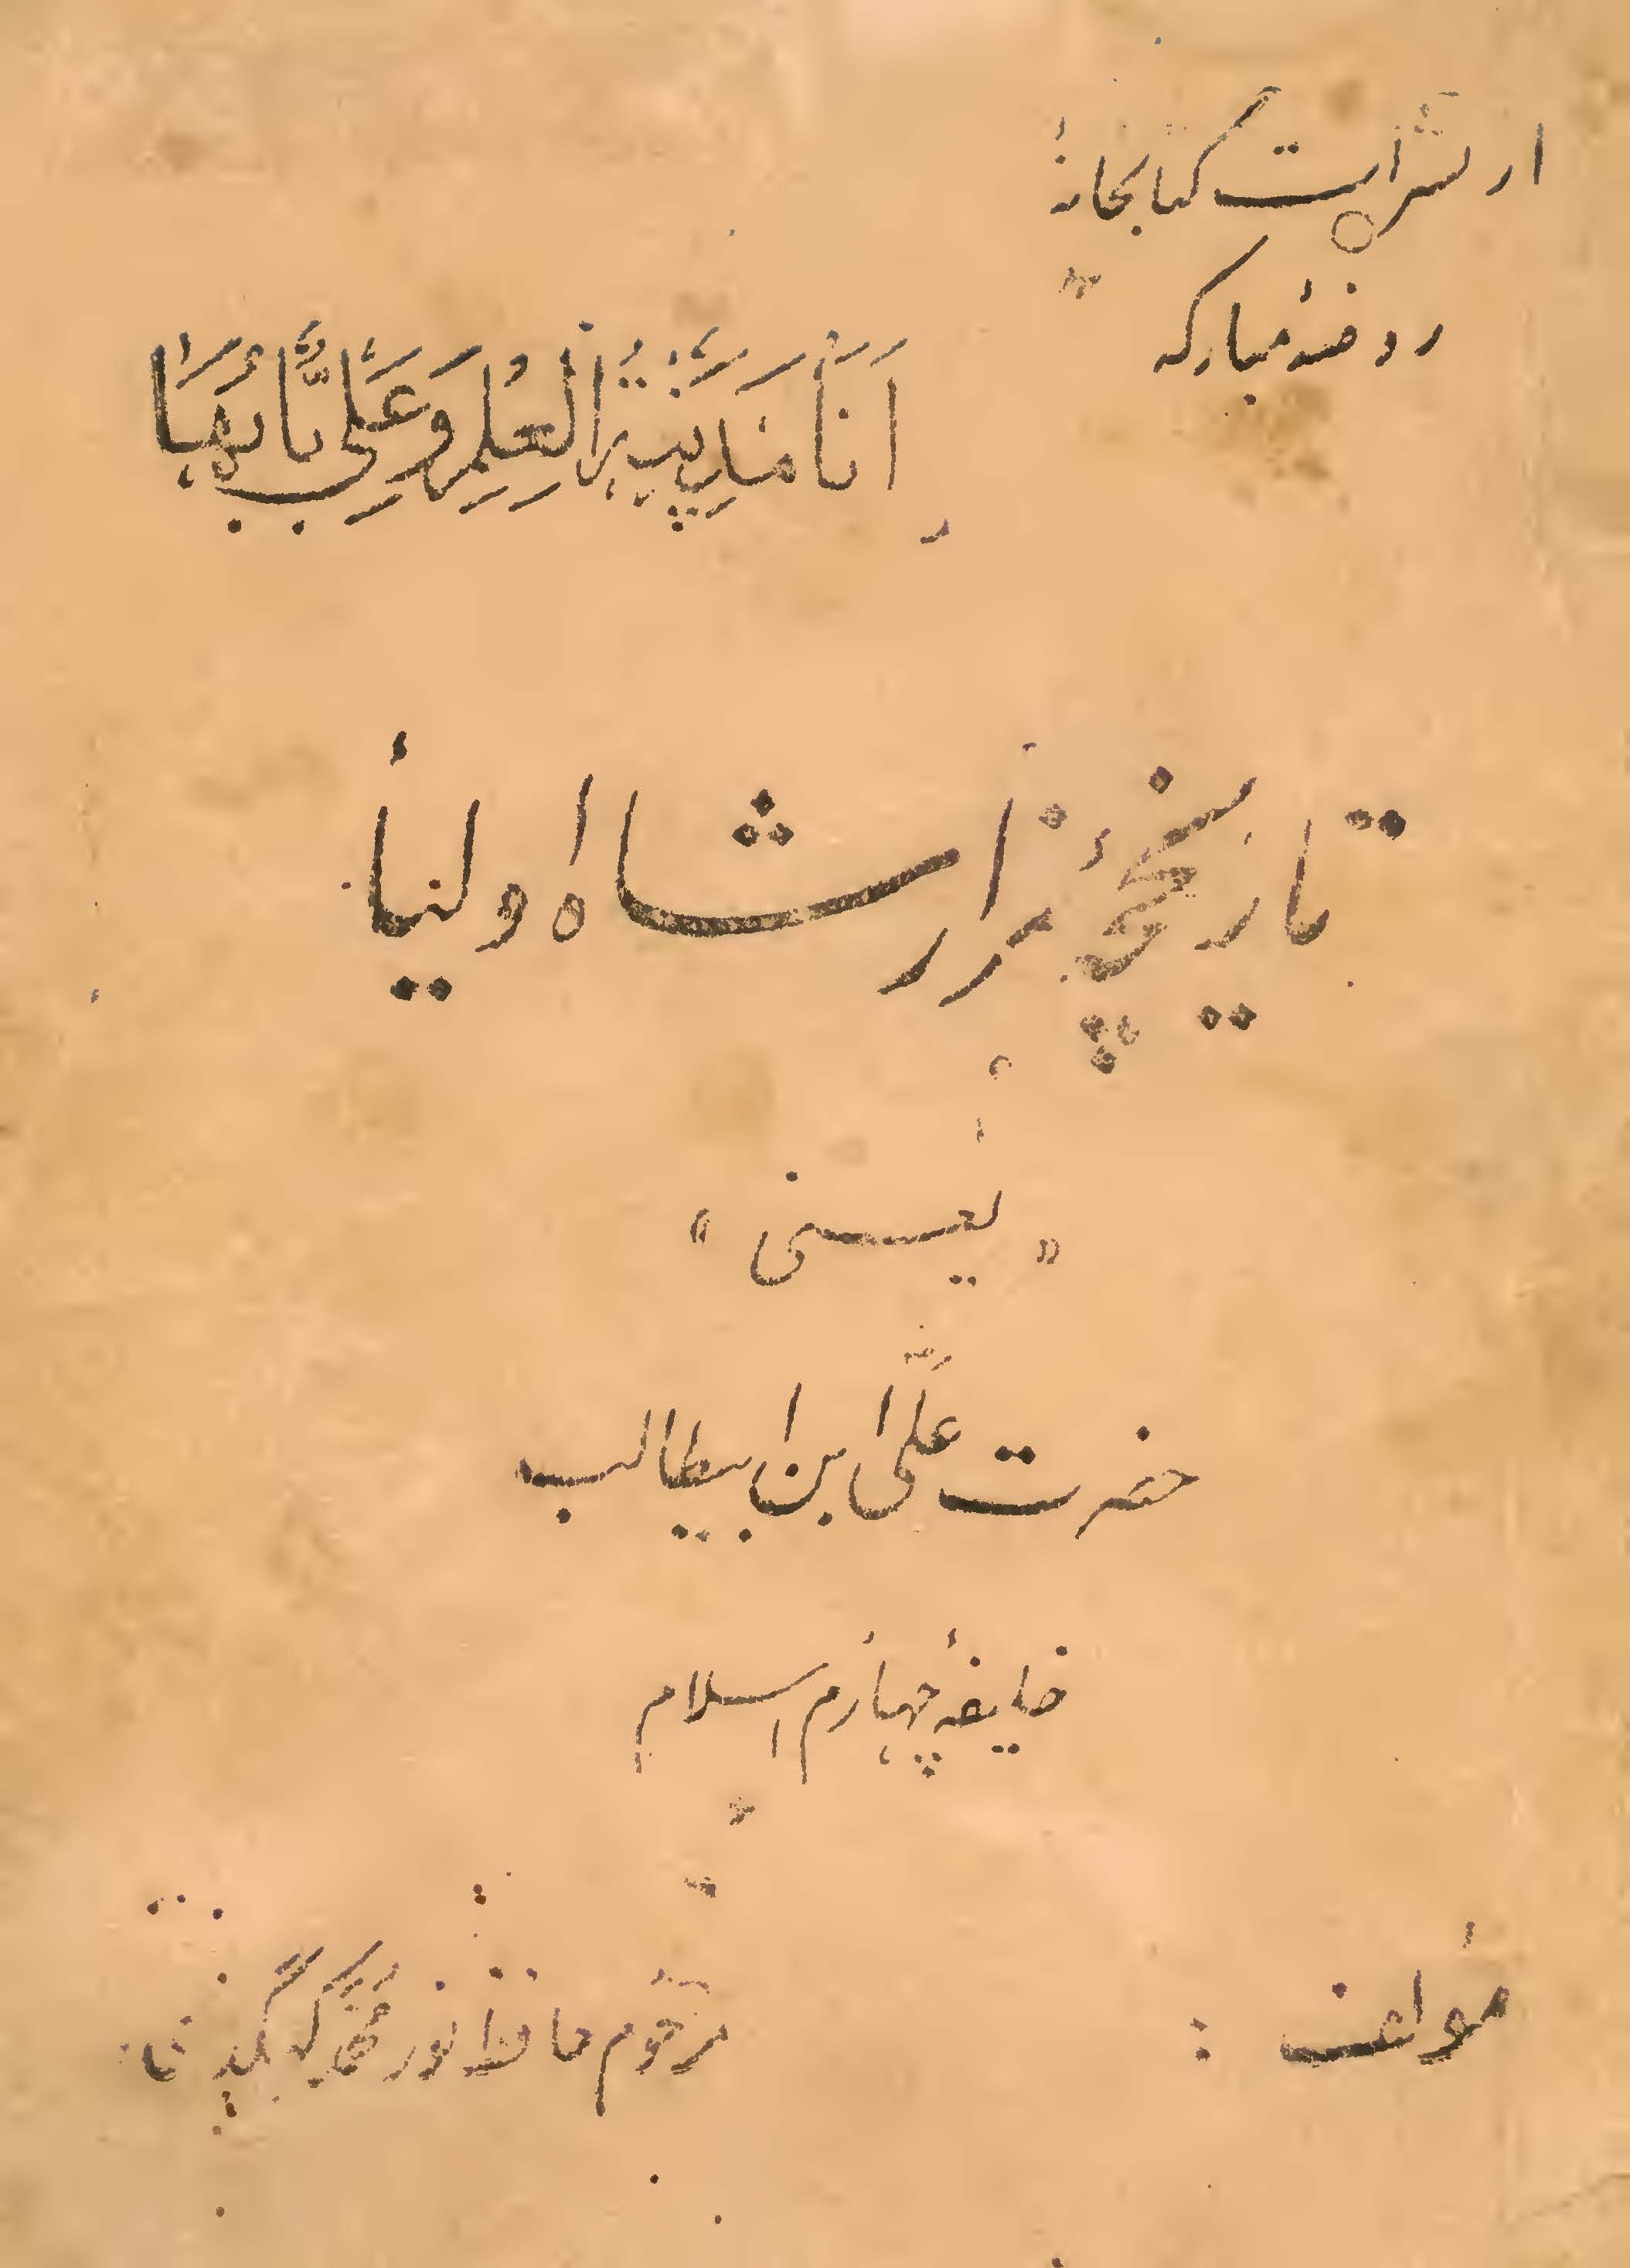 از نشرات کتابخانهٔ
روضهٔ مبارکه
اَنَا مَدِیْنَةُ الْعِلْمِ وَ عَلِیٌّ بَابُهَا
تاریخچهٔ مزار شاه اولیأ
« یعنی »
حضرت علی ابن ابیطالب
خلیفهٔ چهارم اسلام
مؤلف : مرحوم حافظ نور محمد کهگدای